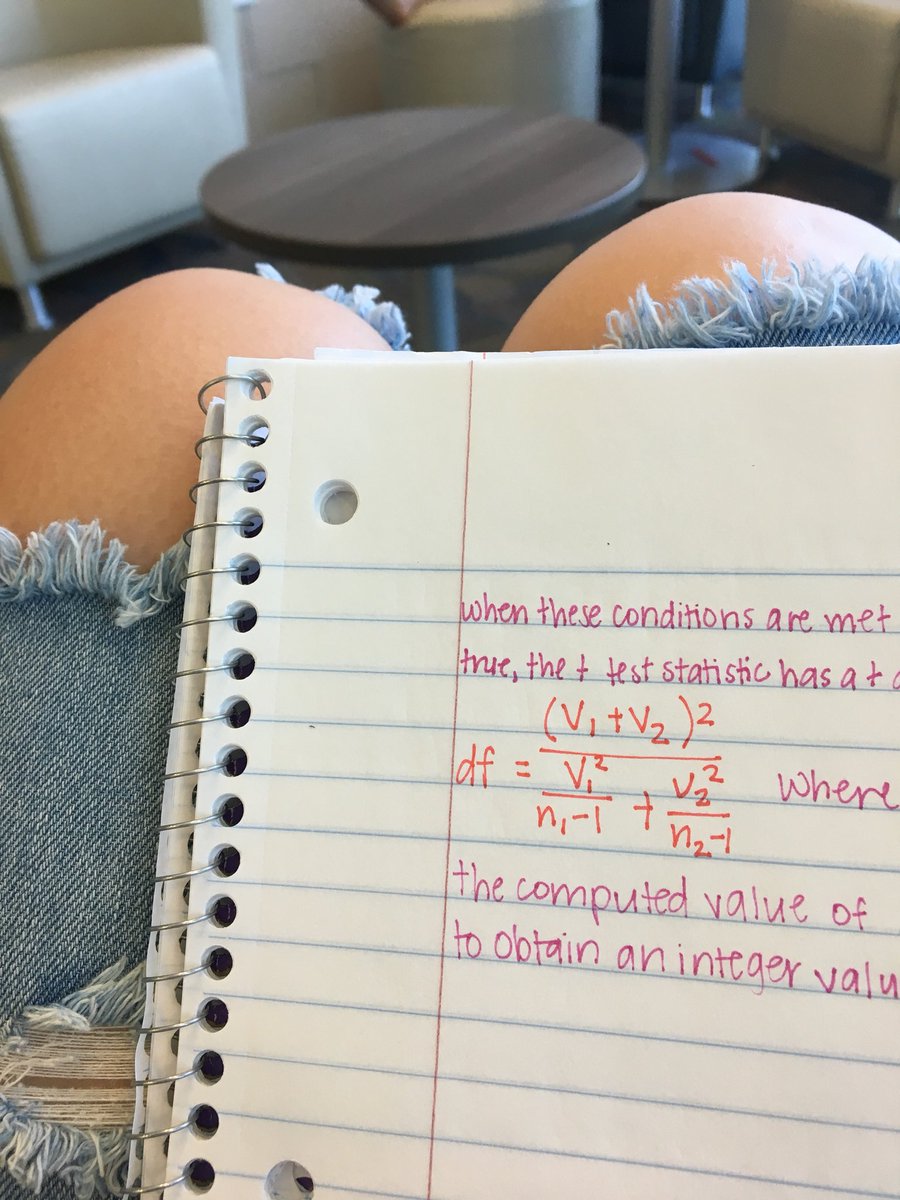 when these conditions are met
true, the t test statistic has a t
(V₁ + V₂)²
df = V₁²/n₁-1 + V₂²/n₂-1 where
the computed value of
to obtain an integer valu